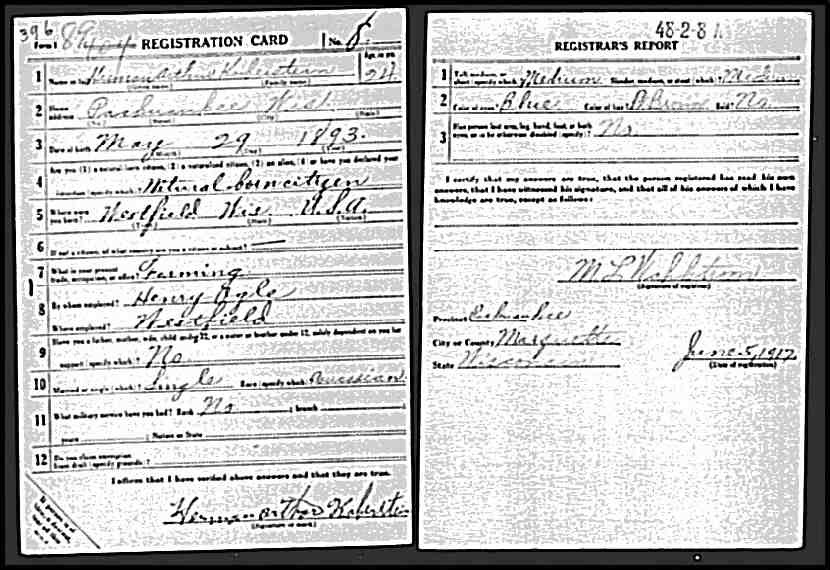 396
Form 1 REGISTRATION CARD No. 8
1 Name in full Herman Arthur Age, in yrs. 24
2 Home address Wis.
3 Date of birth May 29 1893
Are you (1) a natural-born citizen, (2) a naturalized citizen, (3) an alien, (4) or have you declared your
4 intention (specify which)? Natural-born citizen
5 Where were you born? Westfield Wis U.S.A.
6 If not a citizen, of what country are you a citizen or subject?
7 What is your present trade, occupation, or office? Farming
8 By whom employed? Henry
Where employed? Westfield
Have you a father, mother, wife, child under 12, or a sister or brother under 12, solely dependent on you for
9 support (specify which)? No
10 Married or single (which)? Single Race (specify which)?
11 What military service have you had? Rank No ; branch
years ; Nation or State
12 Do you claim exemption from draft (specify grounds)?
I affirm that I have verified above answers and that they are true.
Herman Arthur
(Signature or mark)
48-2-8 A
REGISTRAR'S REPORT
1 Tall, medium, or short (specify which)? Medium Slender, medium, or stout (which)? Medium
2 Color of eyes? Blue Color of hair? Brown Bald? No
3 Has person lost arm, leg, hand, foot, or both eyes, or is he otherwise disabled (specify)? No
I certify that my answers are true, that the person registered has read his own
answers, that I have witnessed his signature, and that all of his answers of which I have
knowledge are true, except as follows:
M L
(Signature of registrar)
Precinct
City or County Marquette
State Wisconsin
June 5, 1917
(Date of registration)